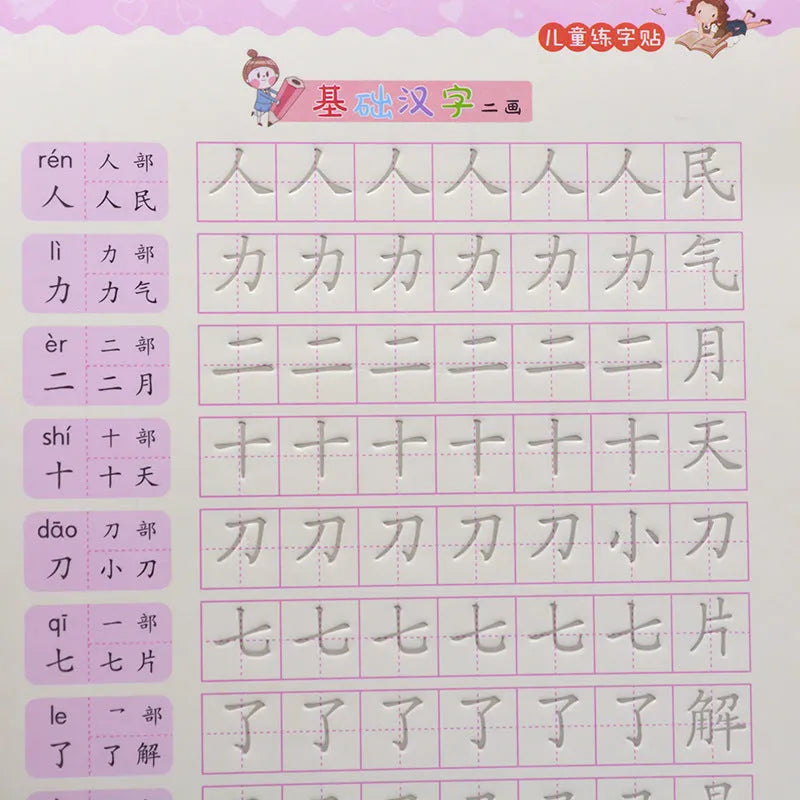 儿童练字贴
基础汉字 二画
rén 人 部
人 人 民
人 人 人 人 人 人 民
lì 力 部
力 力 气
力 力 力 力 力 力 气
èr 二 部
二 二 月
二 二 二 二 二 二 月
shí 十 部
十 十 天
十 十 十 十 十 十 天
dāo 刀 部
刀 小 刀
刀 刀 刀 刀 刀 小 刀
qī 一 部
七 七 片
七 七 七 七 七 七 片
le 乛 部
了 了 解
了 了 了 了 了 了 解